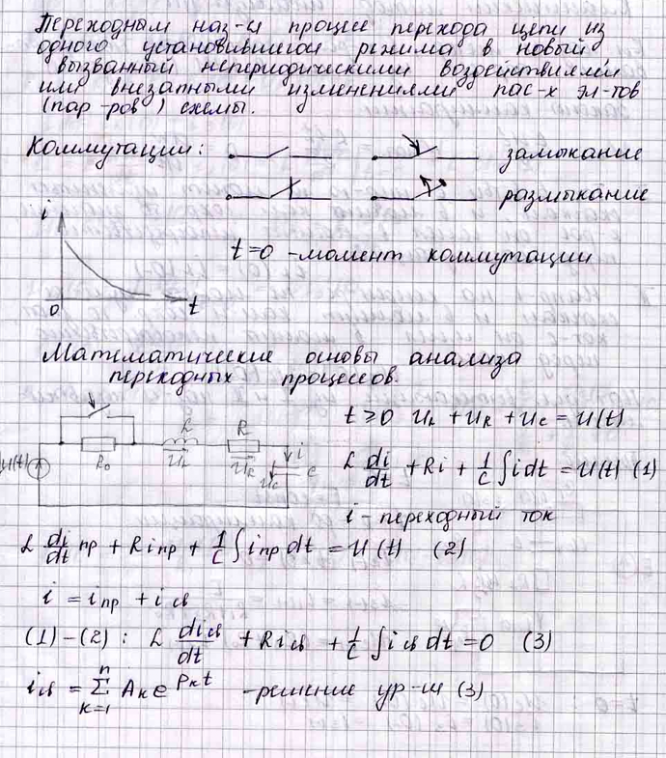 Переходным наз-ся процесс перехода цепи из
одного установившегося режима в новый
вызванный непериодическими воздействиями
или внезапными изменениями пас-х эл-тов
(пар-ров) схемы.
Коммутации: замыкание
размыкание
i
t=0 -момент коммутации
0 t
Математические основы анализа
переходных процессов.
t≥0 u_L + u_R + u_C = u(t)
L R i
u(t) R₀ u_L u_R u_C C
L di/dt + Ri + 1/C ∫idt = u(t) (1)
i - переходный ток
L di/dt пр + Ri пр + 1/C ∫i пр dt = u(t) (2)
i = i пр + i св
(1)-(2): L di св/dt + Ri св + 1/C ∫i св dt = 0 (3)
i св = Σ_{k=1}^{n} A_k e^{p_k t} -решение ур-ия (3)